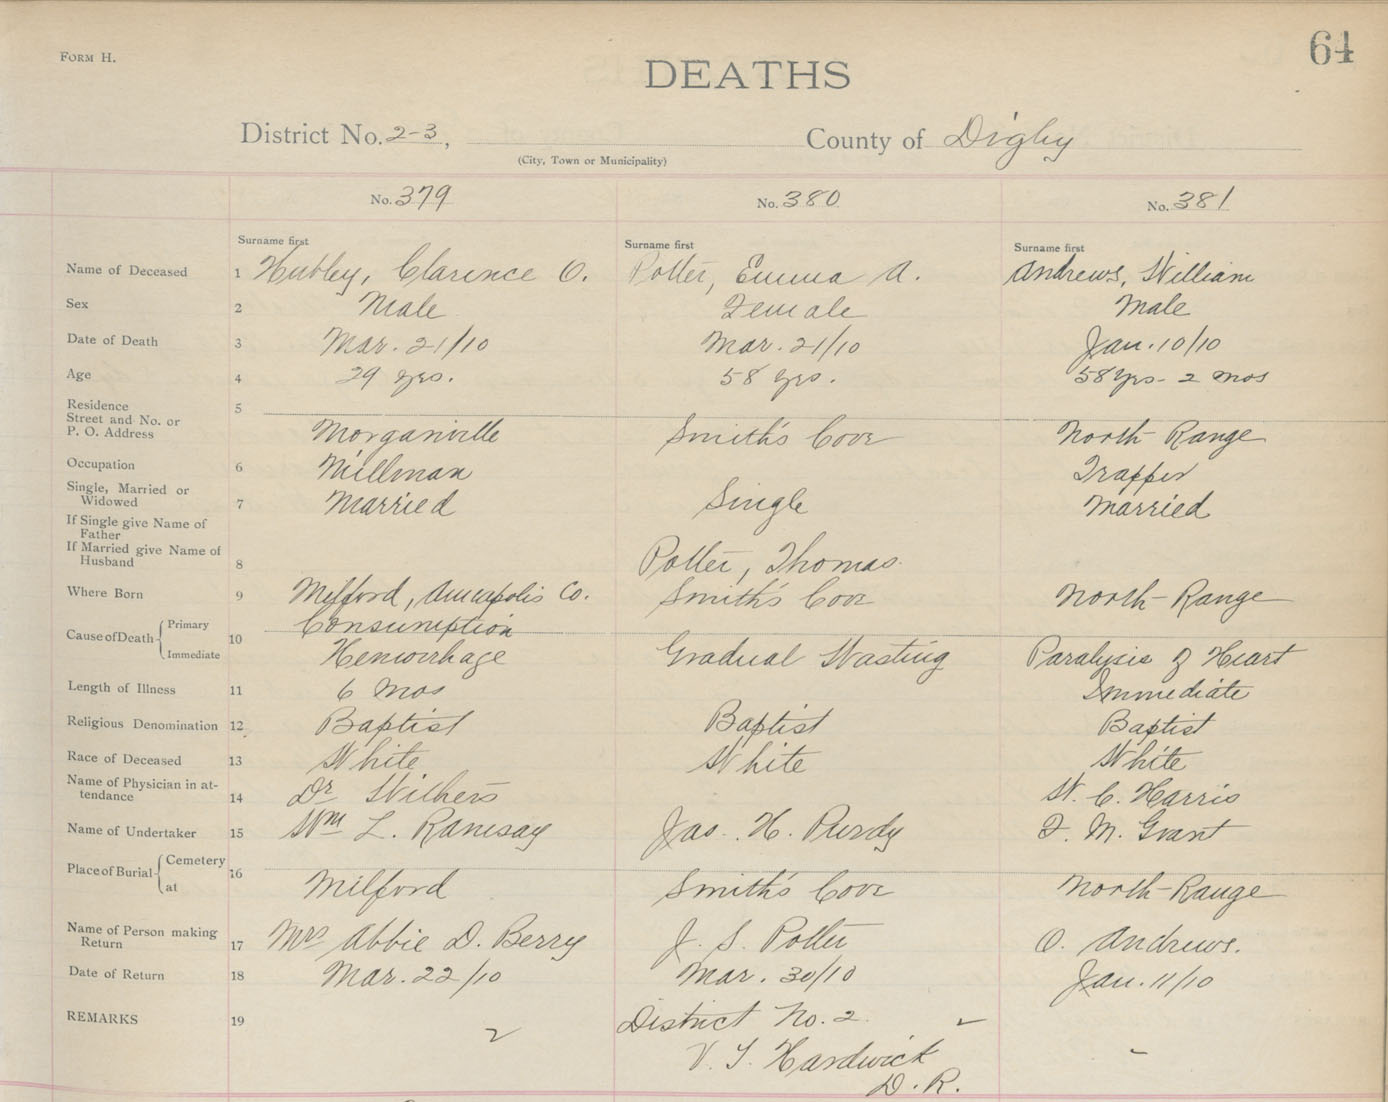 64
FORM H.
DEATHS
District No. 2-3, County of Digby
(City, Town or Municipality)
No. 379 No. 380 No. 381
Surname first Surname first Surname first
Name of Deceased 1 Hubley, Clarence O. Potter, Emma A. Andrews, William
Sex 2 Male Female Male
Date of Death 3 Mar. 21/10 Mar. 21/10 Jan. 10/10
Age 4 29 yrs. 58 yrs. 58 yrs- 2 mos
Residence
Street and No. or
P. O. Address 5 Morganville Smith's Cove North Range
Occupation 6 Millman Trapper
Single, Married or
Widowed 7 Married Single Married
If Single give Name of
Father
If Married give Name of
Husband 8 Potter, Thomas
Where Born 9 Milford, Annapolis Co. Smith's Cove North Range
Cause of Death 10
Primary Consumption
Immediate Hemorrhage Gradual Wasting Paralysis of Heart
Length of Illness 11 6 mos Immediate
Religious Denomination 12 Baptist Baptist Baptist
Race of Deceased 13 White White White
Name of Physician in at-
tendance 14 Dr Withers W. C. Harris
Name of Undertaker 15 Wm L. Ramsay Jas. H. Purdy F. M. Grant
Place of Burial 16
Cemetery
at Milford Smith's Cove North Range
Name of Person making
Return 17 Mrs Abbie D. Berry J. S. Potter O. Andrews.
Date of Return 18 Mar. 22/10 Mar. 30/10 Jan. 11/10
REMARKS 19 District No. 2
Hardwick
D. R.